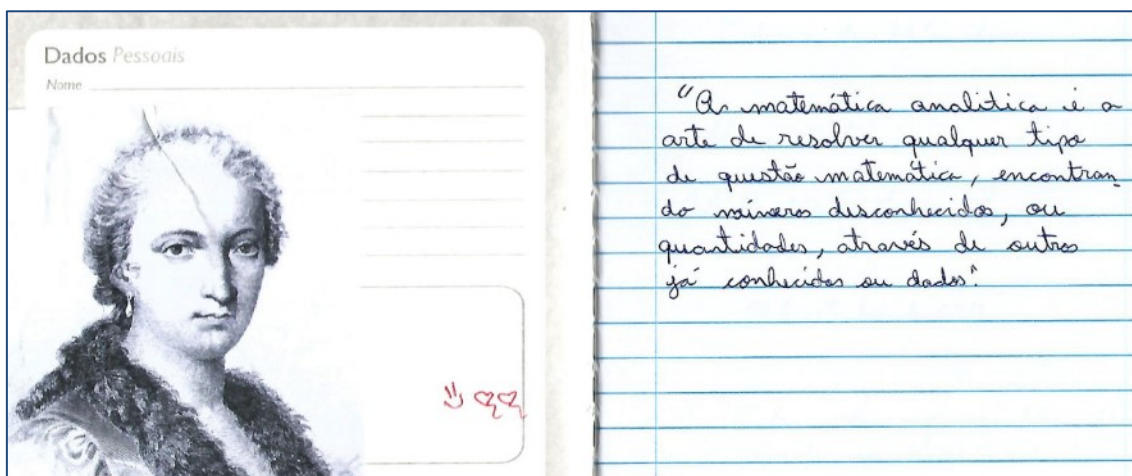 Dados Pessoais
Nome
"A matemática analitica é a
arte de resolver qualquer tipo
de questão matemática, encontran_
do números desconhecidos, ou
quantidades, através de outros
já conhecidos ou dados".